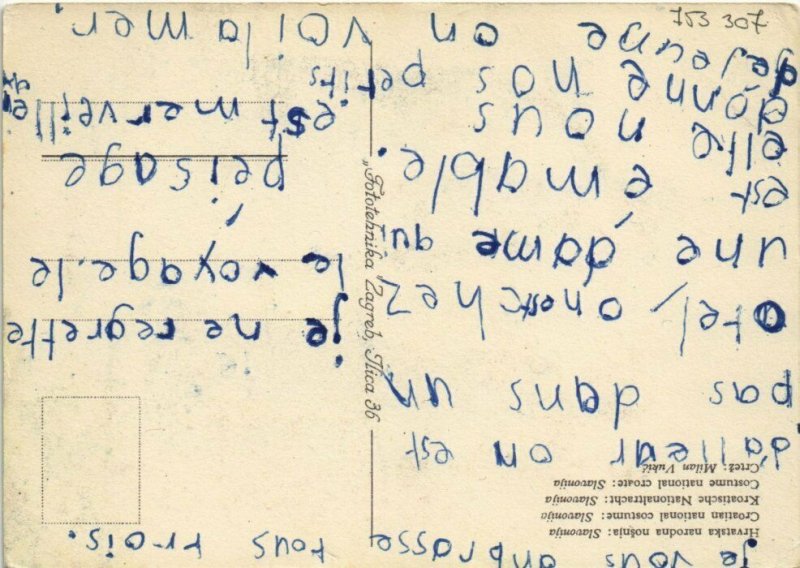 je vous anbrasse tous trois.
Hrvatska narodna nošnja: Slavonija
Croatian national costume: Slavonija
Kroatische Nationaltracht: Slavonija
Costume national croate: Slavonija
Crtež: Milan Vukić
d'alleur on est
pas dans un
otel, on est chez
une dame qui
est émable.
elle nous
donne nos petits
dejeune on voi la mer.
je ne regrette
le voyage. le
peisage
est merveille
„Fototehnika Zagreb, Ilica 36
753 307